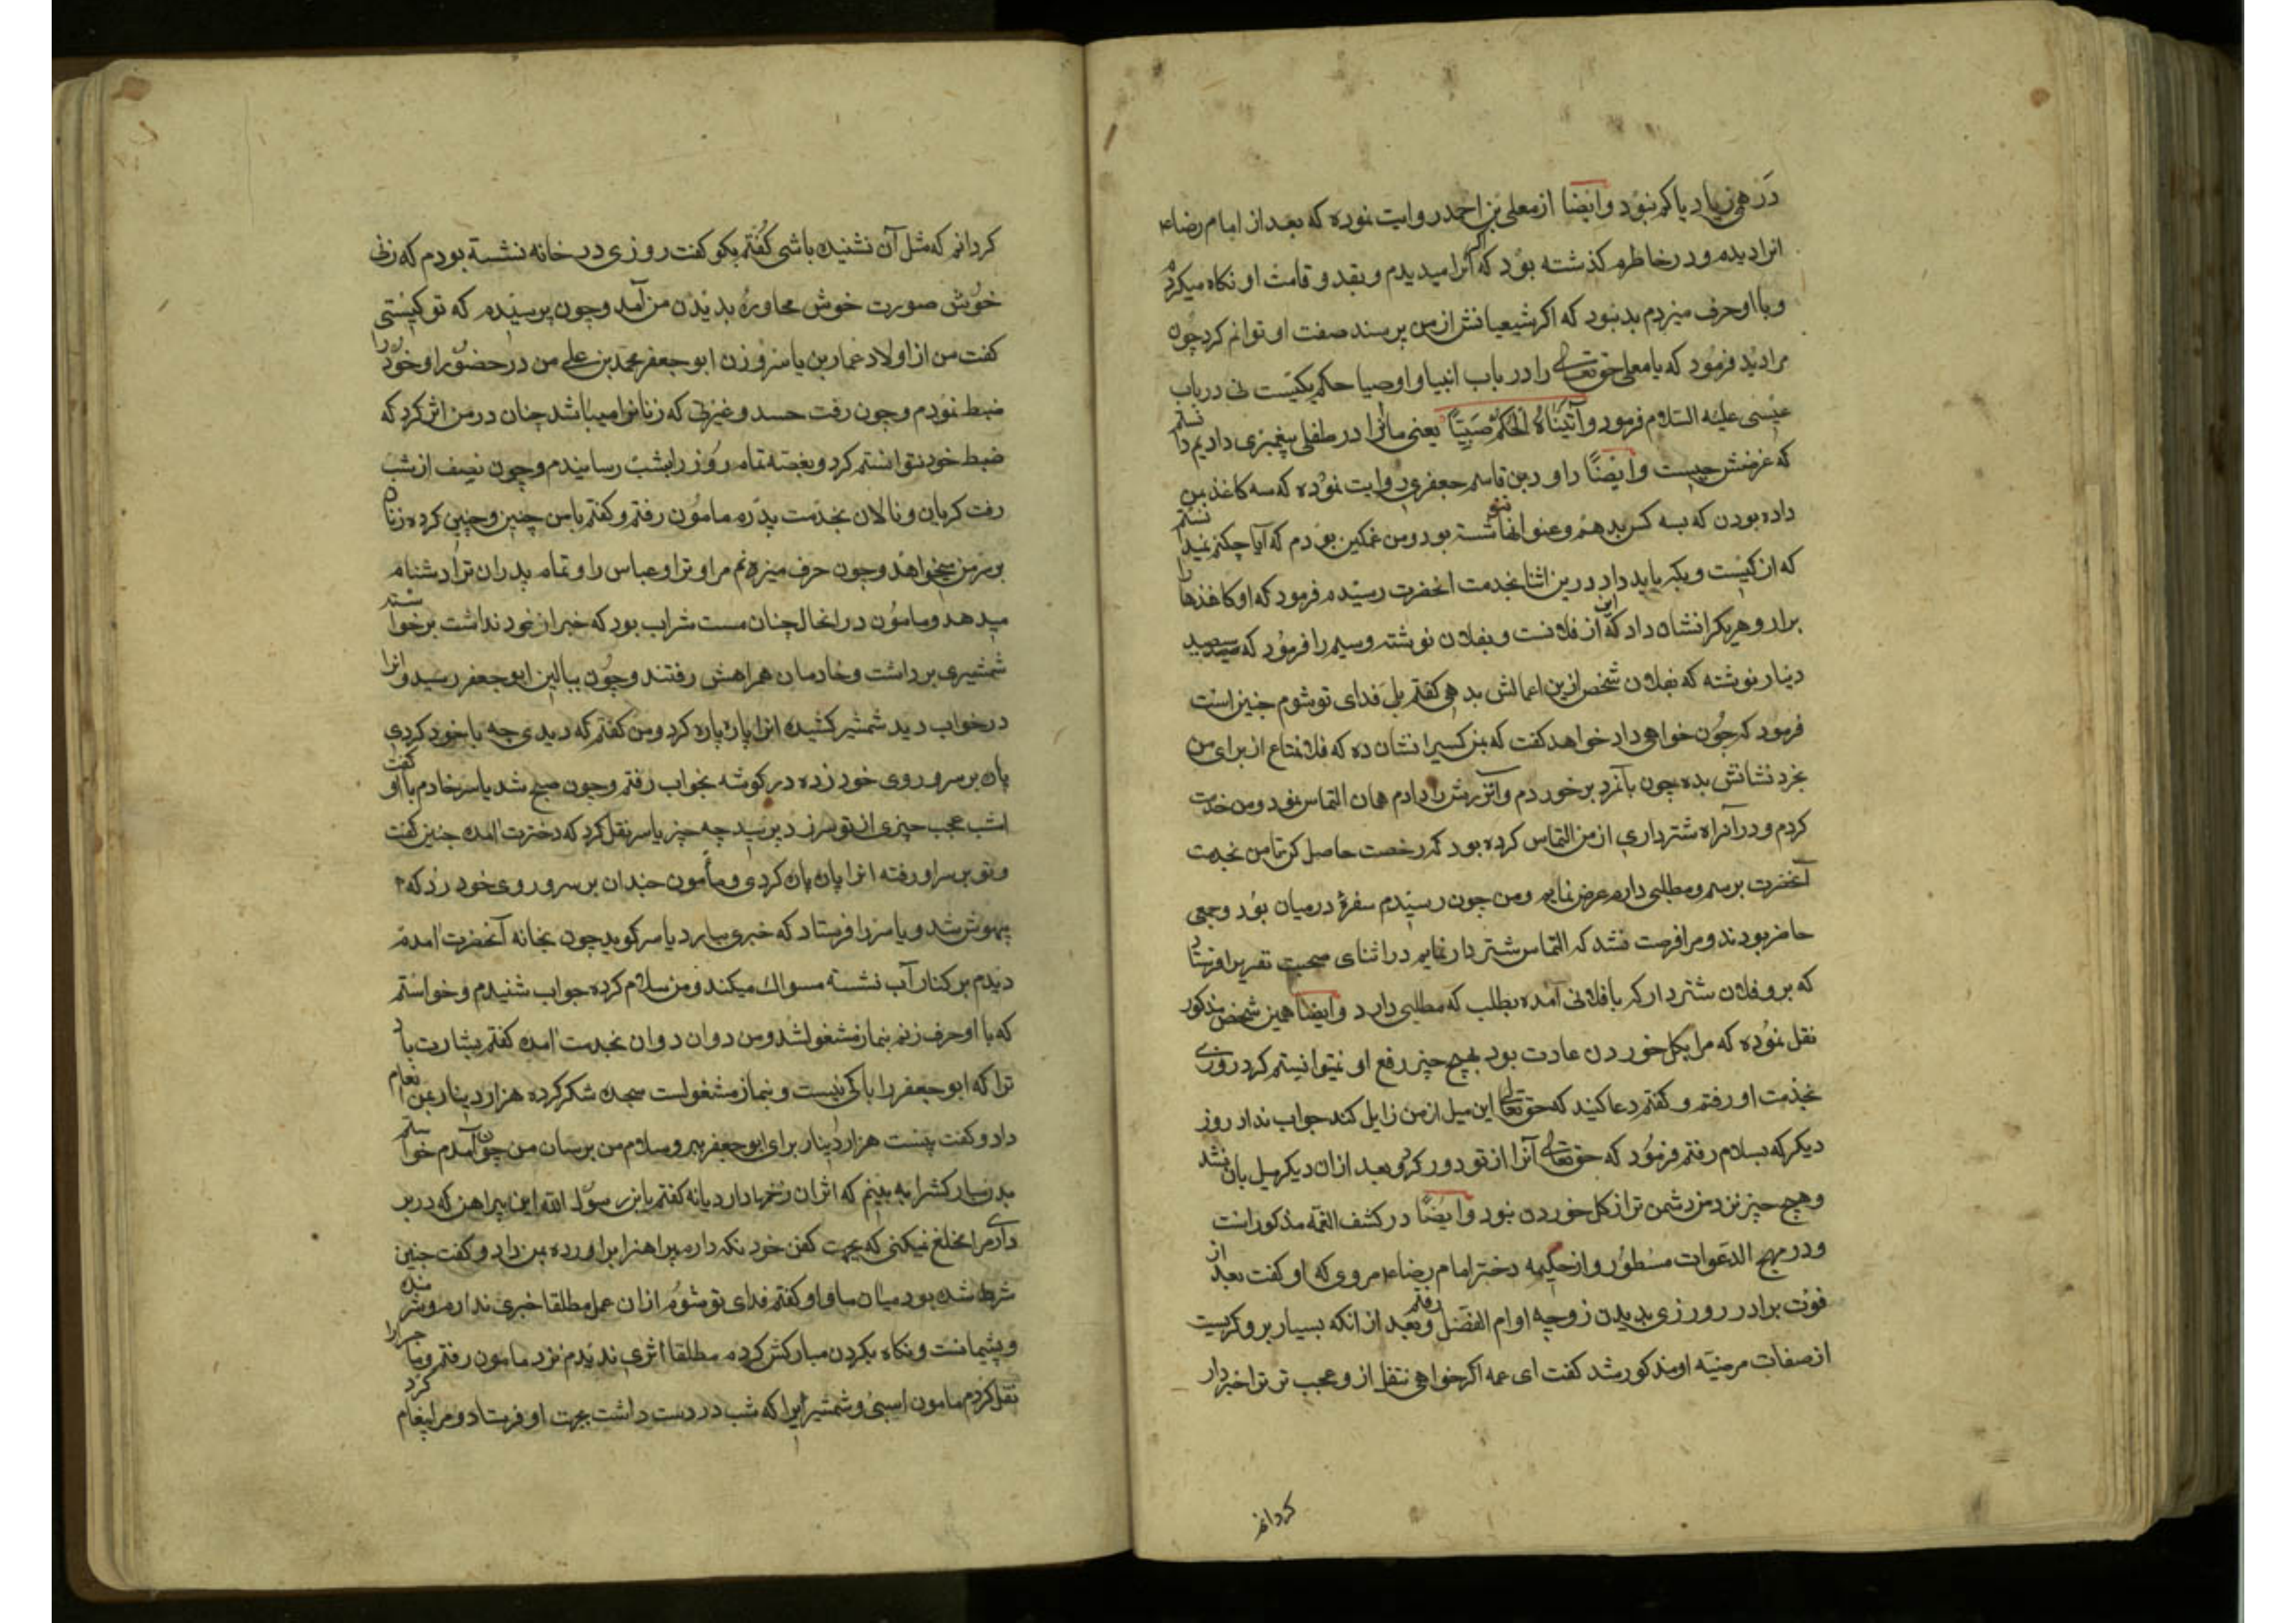 درهمی زیاد یا کم نبود وایضا از معلی بن احمد روایت نموده که بعد از امام رضاء
انرا دیدم و در خاطرم گذشته بود که اگر انرا میدیدم و بقد و قامت او نگاه میکردم
و با او حرف میزدم بد نبود که اگر شیعیانش از من پرسند صفت او توانم کرد چون
مرا دید فرمود که یا معلی حقتعالی را در باب انبیا و اوصیا حکم یکیست نی در باب
عیسی علیه السلام فرمود وآتیناه الحکم صبیا یعنی ما انرا در طفلی پیغمبری دادیم دانستم
که غرضش چیست وایضا داود بن قاسم جعفری روایت نموده که سه کاغذ بمن
داده بودن که بسه کس بدهم و عنوانها ننوشته بود و من غمکین بودم که آیا چکنم نمیدانستم
که از کیست و بکه باید داد درین اثنا بخدمت انحضرت رسیدم فرمود که او کاغذها را
برار و هریکرا نشان داد که این از فلانست و بفلان نوشته و سیم را فرمود که سیصد
دینار نوشته که بفلان شخص ازین اعمالش بدهی کفتم بلی فدای تو شوم چنین است
فرمود که چون خواهی داد خواهد کفت که بمن کسیرا نشان ده که فلانمتاع از برای من
بخرد نشانش بده چون بآنمرد برخوردم و آنزرش را دادم همان التماس نمود و من خدمت
کردم و در آنراه شترداری از من التماس کرده بود که رخصت حاصل کن تا من بخدمت
آنحضرت برسم و مطلبی دارم عرض نمایم و من چون رسیدم سفرۀ درمیان بود و جمعی
حاضر بودند و مرا فرصت نشد که التماس شتر دار نمایم در اثنای صحبت نفریرا فرستاد
که برو فلان شتردار که با فلانی آمده بطلب که مطلبی دارد وایضا همین شخص مذکور
نقل نموده که مرا بکل خوردن عادت بود بهیچ چیز رفع او نمیتوانیستم کرد روزی
بخدمت او رفتم و کفتم دعا کنید که حقتعالی این میل از من زایل کند جواب نداد روز
دیکر که بسلام رفتم فرمود که حقتعالی آنرا از تو دور کرد و بعد ازان دیکر میل بان نشد
و هیچ چیز نزد من دشمن تر از کل خوردن نبود وایضا در کشف الغمه مذکور است
و در مهج الدعوات مسطور و از حکیمه دختر امام رضاء مروی که او کفت بعد از
فوت برادر روزی بدیدن زوجه او ام الفضل رفتم و بعد از انکه بسیار بر و کریست
از صفات مرضیه او مذکور شد کفت ای عمه اکر خواهی نتقل از و عجب تر ترا خبردار
کردانم
کردانم که مثل آن نشنیده باشی کفتم بکو کفت روزی در خانه نشسته بودم که زنی
خوش صورت خوش محاوره بدیدن من آمد و چون پرسیدم که تو کیستی
کفت من از اولاد عمار بن یاسر و زن ابو جعفر محمد بن علی من در حضور او خود را
ضبط نمودم و چون رفت حسد و غیرتی که زنانرا میباشد چنان در من اثر کرد که
ضبط خود نتوانستم کرد و بغصه تمام روز را بشب رسانیدم و چون نصف از شب
رفت کریان و نالان بخدمت پدرم مامون رفتم و کفتم با من چنین و چنین کرده زنان
بر سر من میخواهد و چون حرف میزنم مرا و ترا و عباس را و تمام پدران ترا دشنام
میدهد و مامون در انحال چنان مست شراب بود که خبر از خود نداشت برخواسته
شمشیری برداشت و خادمان همراهش رفتند و چون ببالین ابو جعفر رسید و انرا
درخواب دید شمشیر کشیده انرا پاره پاره کرد و من کفتم که دیدی چه با خود کردی
پاره بر سر و روی خود زده در کوشه بخواب رفتم و چون صبح شد یاسر خادم با او کفت
امشب عجب چیزی از تو سر زد پرسید چه چیز یاسر نقل کرد که دخترت امده چنین کفت
و تو بر سر او رفته انرا پاره پاره کردی و مأمون چندان بر سر و روی خود زد که
بیهوش شد و یاسر را فرستاد که خبری بیارد یاسر کوید چون بخانه آنحضرت امدم
دیدم بر کنار آب نشسته مسواک میکند و من سلام کرده جواب شنیدم و خواستم
که با او حرف زنم بنماز مشغولشد و من دوان دوان بخدمت امده کفتم بشارت باد
ترا که ابو جعفر را باکی نیست و بنماز مشغولست سجده شکر کرده هزار دینار بمن انعام
داد و کفت بیست هزار دینار برای ابو جعفر ببر و سلام من برسان من چون آمدم خواستم
بدن مبارکشرا به بینم که اثر ان زخمها دارد یا نه کفتم یا بن رسول الله این پیراهن که در بر
داری مرا مخلع نمیکنی که بجهت کفن خود نکه دارم پیراهنرا براورده بمن داد و کفت چنین
شرط شده بود میان ما و او کفتم فدای تو شوم از ان عمل مطلقا خبری ندارد و شرمنده
و پشیمانست و نکاه ببدن مبارکش کردم مطلقا اثری ندیدم نزد مامون رفتم و ماجرا را
نقل کردم مامون اسبی و شمشیر انرا که شب در دست داشت بجهت او فرستاد و مرا پیغام کرد